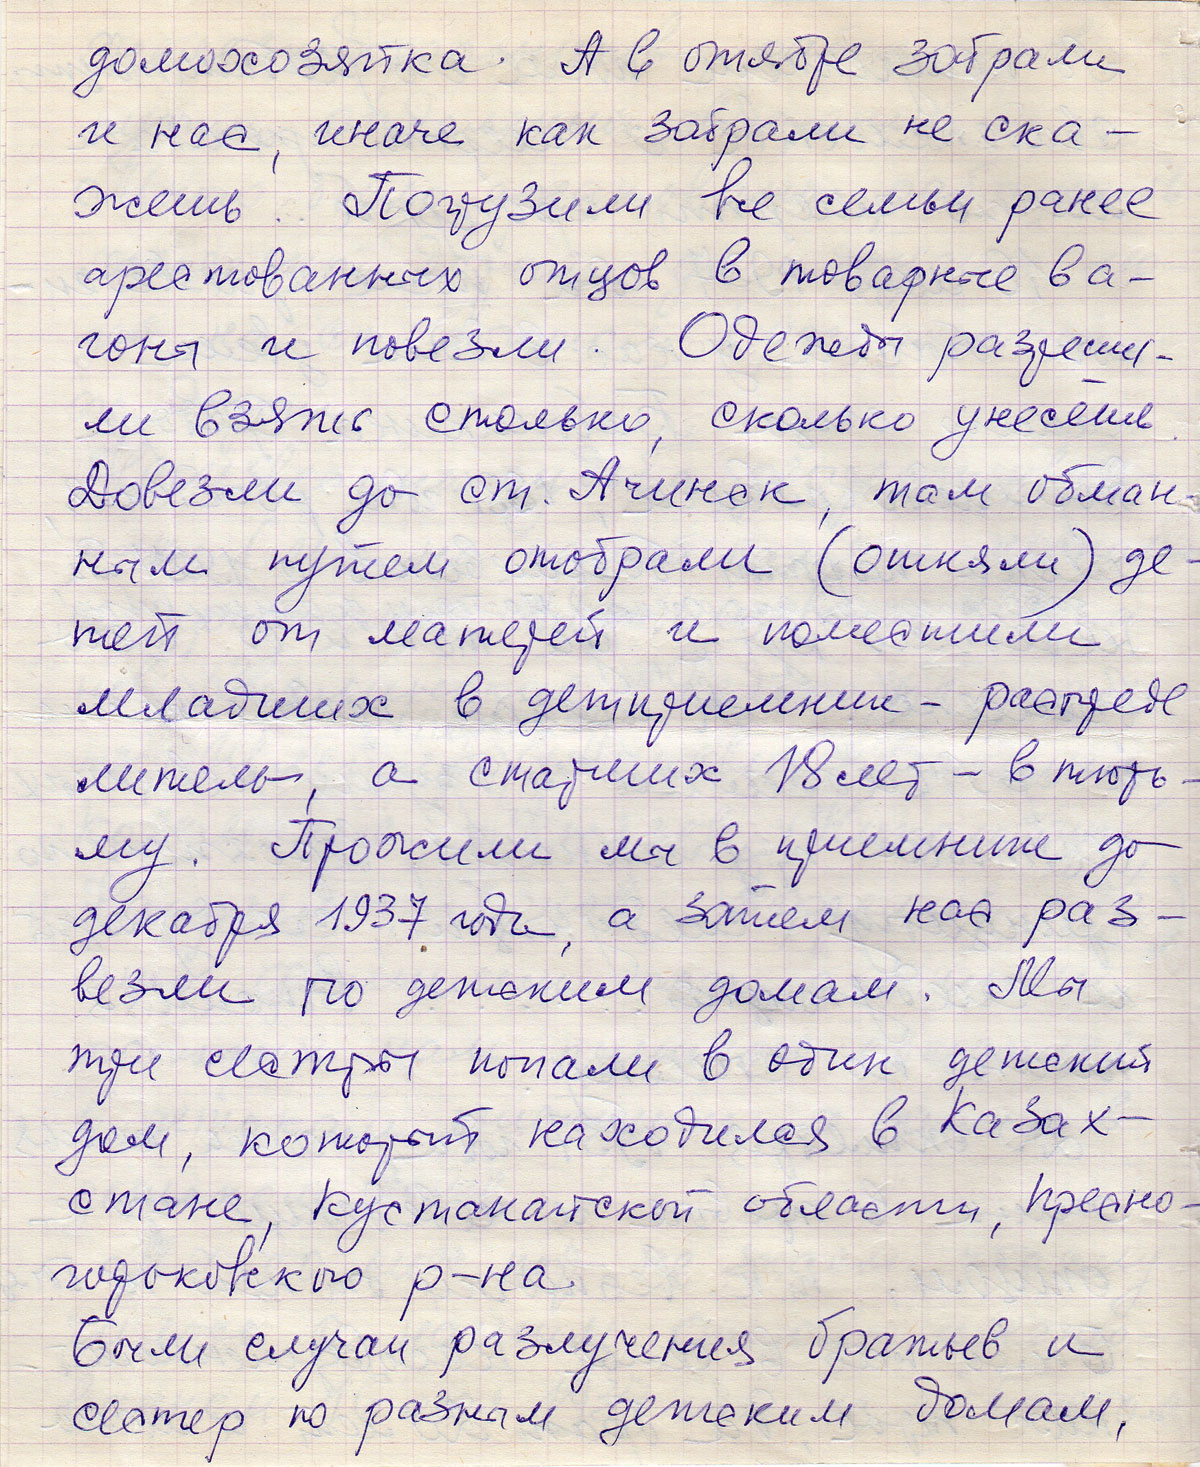 домохозяйка. А в октябре забрали
и нас, иначе как забрали не ска-
жешь. Погрузили все семьи ранее
арестованных отцов в товарные ва-
гоны и повезли. Одежды разреши-
ли взять столько, сколько унесёшь.
Довезли до ст. Ачинск, там обман-
ным путем отобрали (отняли) де-
тей от матерей и поместили
младших в детприемник - распреде
литель, а старших 18 лет - в тюрь-
му. Прожили мы в приемнике до
декабря 1937 года, а затем нас раз-
везли по детским домам. Мы
три сестры попали в один детский
дом, который находился в Казах-
стане, Кустанайской области, Пресно-
горьковского р-на.
Были случаи разлучения братьев и
сестер по разным детским домам,